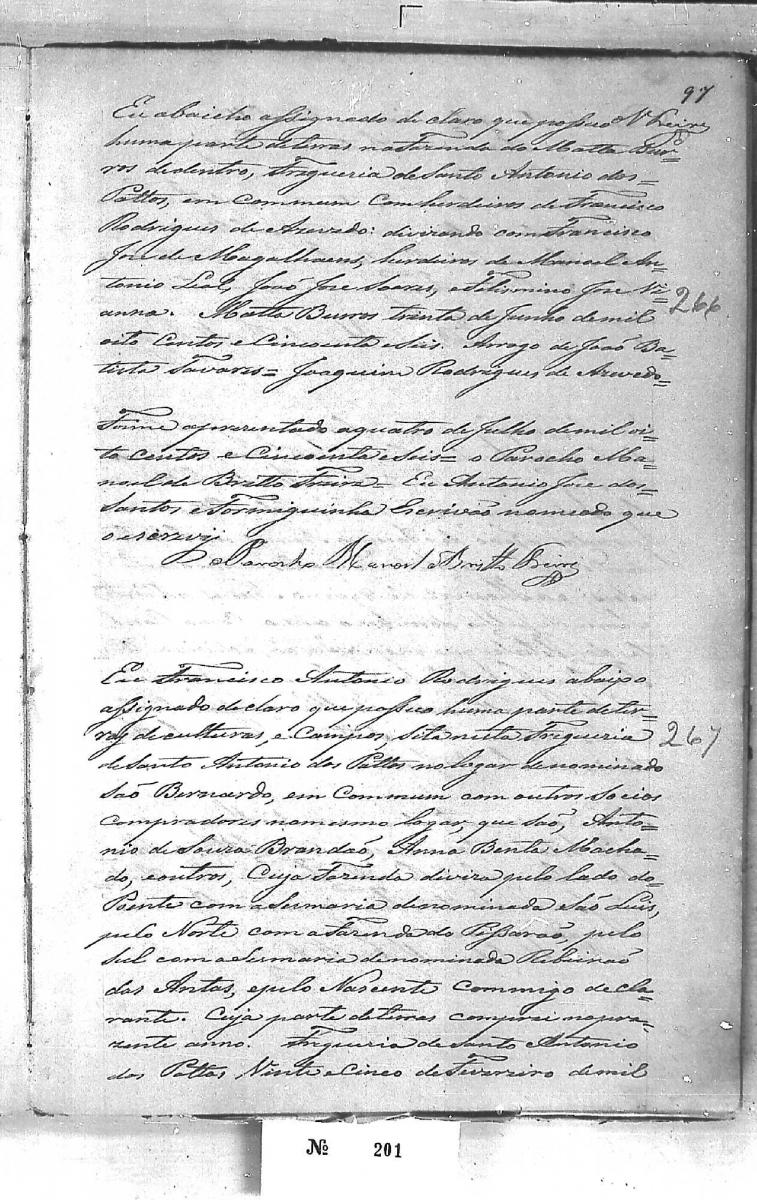 97
Eu abaicho assignado de claro que possuo Nº Freire
huma parte deterras na Fazenda do Matta Bur=
ros dedentro, Fregueria de Santo Antonio dos=
Pattos, em commum com herdeiros de Francisco
Rodrigues de Azevedo: divizando com Francisco
Jose de Magalhaens, herdeiros de Manoel An=
tonio Leal, Joaõ Jose Soares, e Felismino Jose Vi=
anna. Matta Burros trinta de Junho de mil
266
oito Centos e Cincoenta e Seis. Arrogo de Joaõ Ba=
tista Tavares= Joaquim Rodrigues de Azevedo.
Foime aprezentado a quatro de Julho de mil oi=
to Centos e Cincoenta e Seis= o Parocho Ma=
noel de Britto Freire= Eu Antonio Jose dos=
Santos e Formiguinha Escrivaõ nomeado que
o escrevy
o Parocho Manoel Britto Freire
Eu Francisco Antonio Rodrigues abaixo
assignado de claro que possuo huma parte de ter=
ras de culturas, e Campos, Sita nesta Fregueria
267
de Santo Antonio dos Pattos no logar denominado
Saõ Bernardo, em Commum com outros Socios
Compradores nomesmo logar, que saõ, Anto=
nio de Souza Brandaõ, Anna Benta Macha=
do, e outros, Cuja Fazenda diviza pelo lado do=
Poente com a Sesmaria denominada Saõ Luis,
pelo Norte com a Fazenda do Pissaraõ, pelo
Sul com a Sesmaria denominada Ribeiraõ
das Antas, e pelo Nascente Commigo de cla=
rante. Cuja parte deterras comprei nopra=
zente anno. Fregueria de Santo Antonio
dos Pattos Vinte e Cinco de Fevereiro de mil
Nº 201